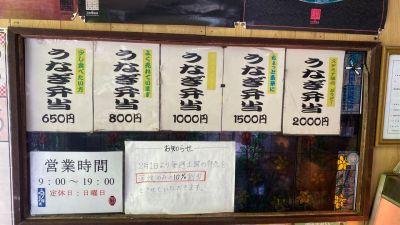 少し食べたい方
うなぎ弁当
650円
よく売れています
うなぎ弁当
800円
うなぎ弁当
1000円
ちょっと豪華に
うなぎ弁当
1500円
うなぎ弁当
2000円
営業時間
9:00〜19:00
定休日:日曜日
お知らせ
10%割引
とさせていただきます。